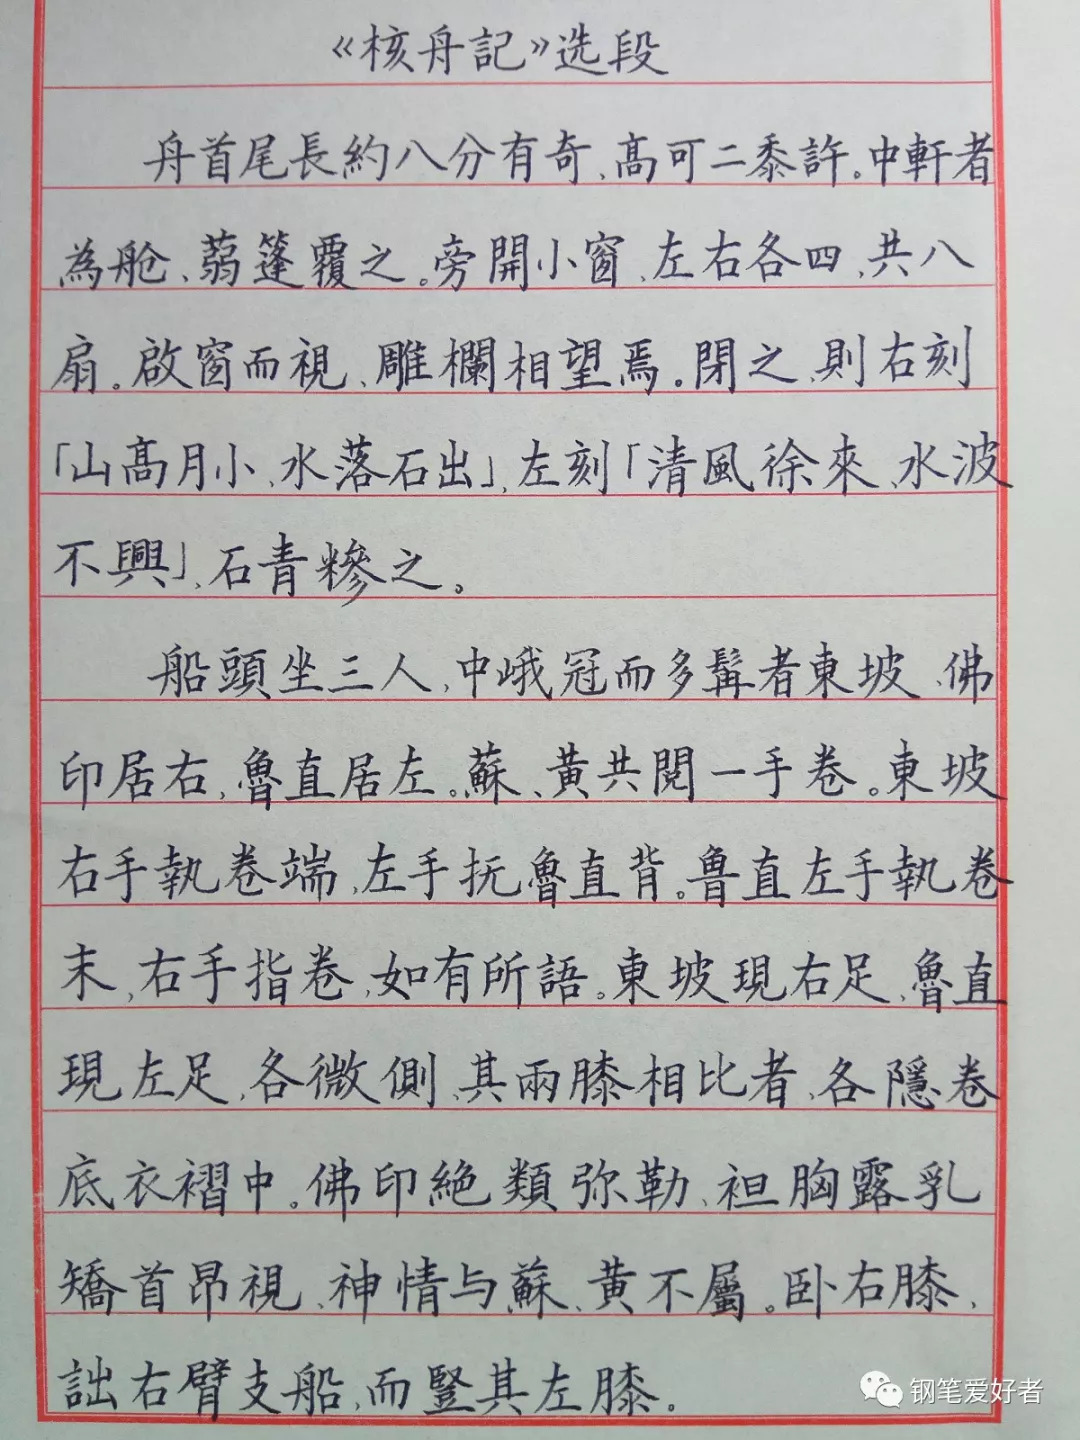 《核舟記》选段
舟首尾長約八分有奇、高可二黍許。中軒者
為舱、蒻篷覆之。旁開小窗、左右各四、共八
扇。啟窗而視、雕欄相望焉。閉之、則右刻
「山高月小、水落石出」、左刻「清風徐來、水波
不興」、石青糝之。
船頭坐三人、中峨冠而多髯者東坡、佛
印居右、魯直居左。蘇、黃共閱一手卷。東坡
右手執卷端、左手抚魯直背。魯直左手執卷
末、右手指卷、如有所語。東坡現右足、魯直
現左足、各微側、其兩膝相比者、各隱卷
底衣褶中。佛印絕類弥勒、袒胸露乳
矯首昂視、神情与蘇、黃不屬。卧右膝、
詘右臂支船、而豎其左膝。
钢笔爱好者